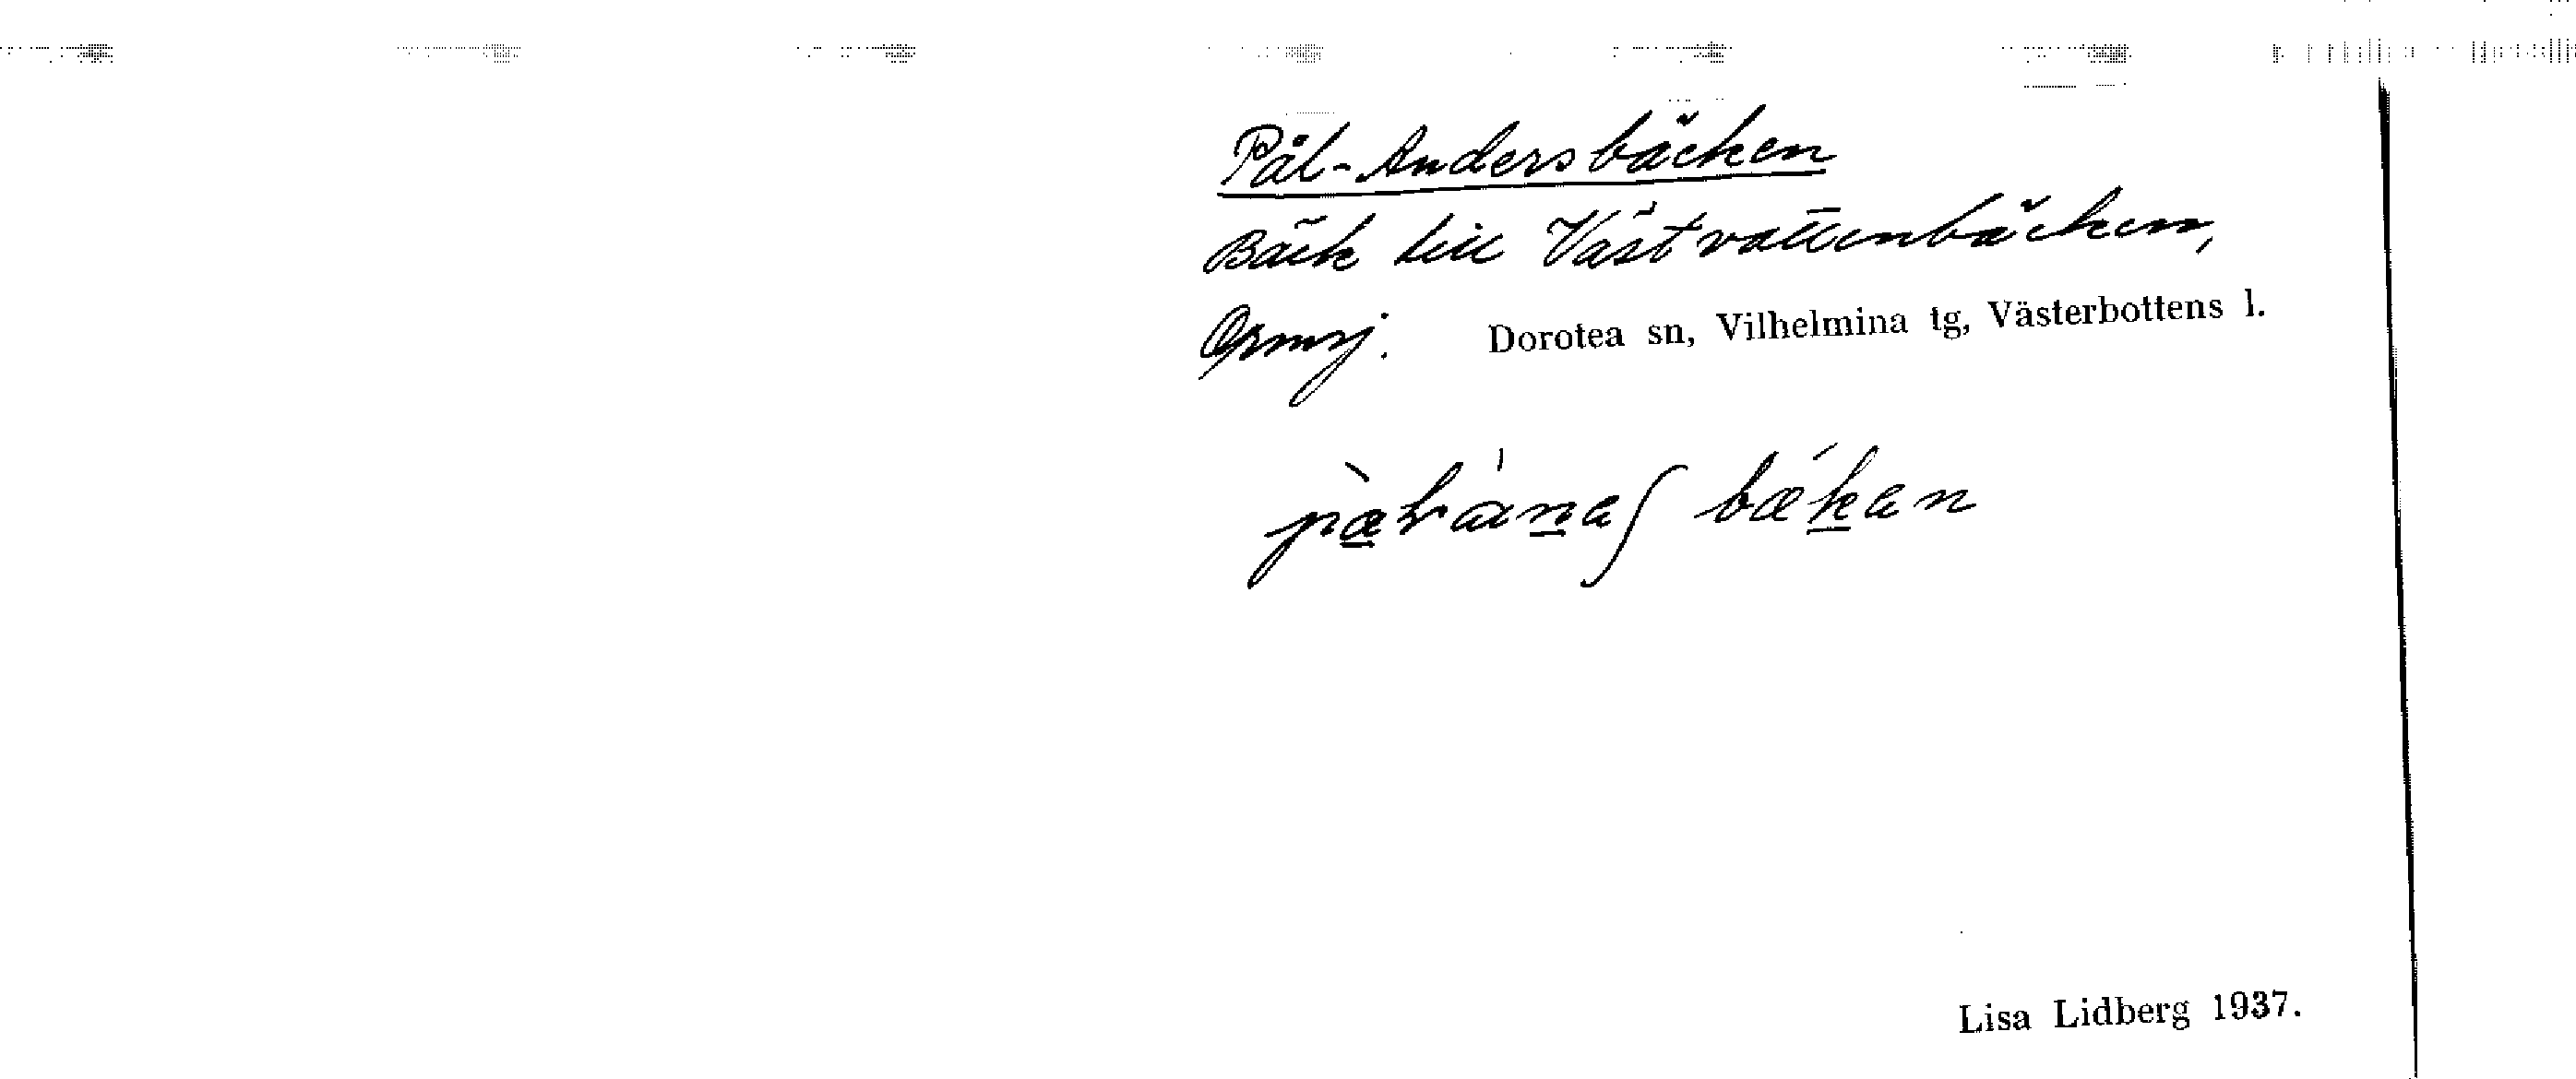 Pål-Andersbäcken
Bäck till Västvattenbäcken,
Ormsj. Dorotea sn, Vilhelmina tg, Västerbottens l.
Lisa Lidberg 1937.